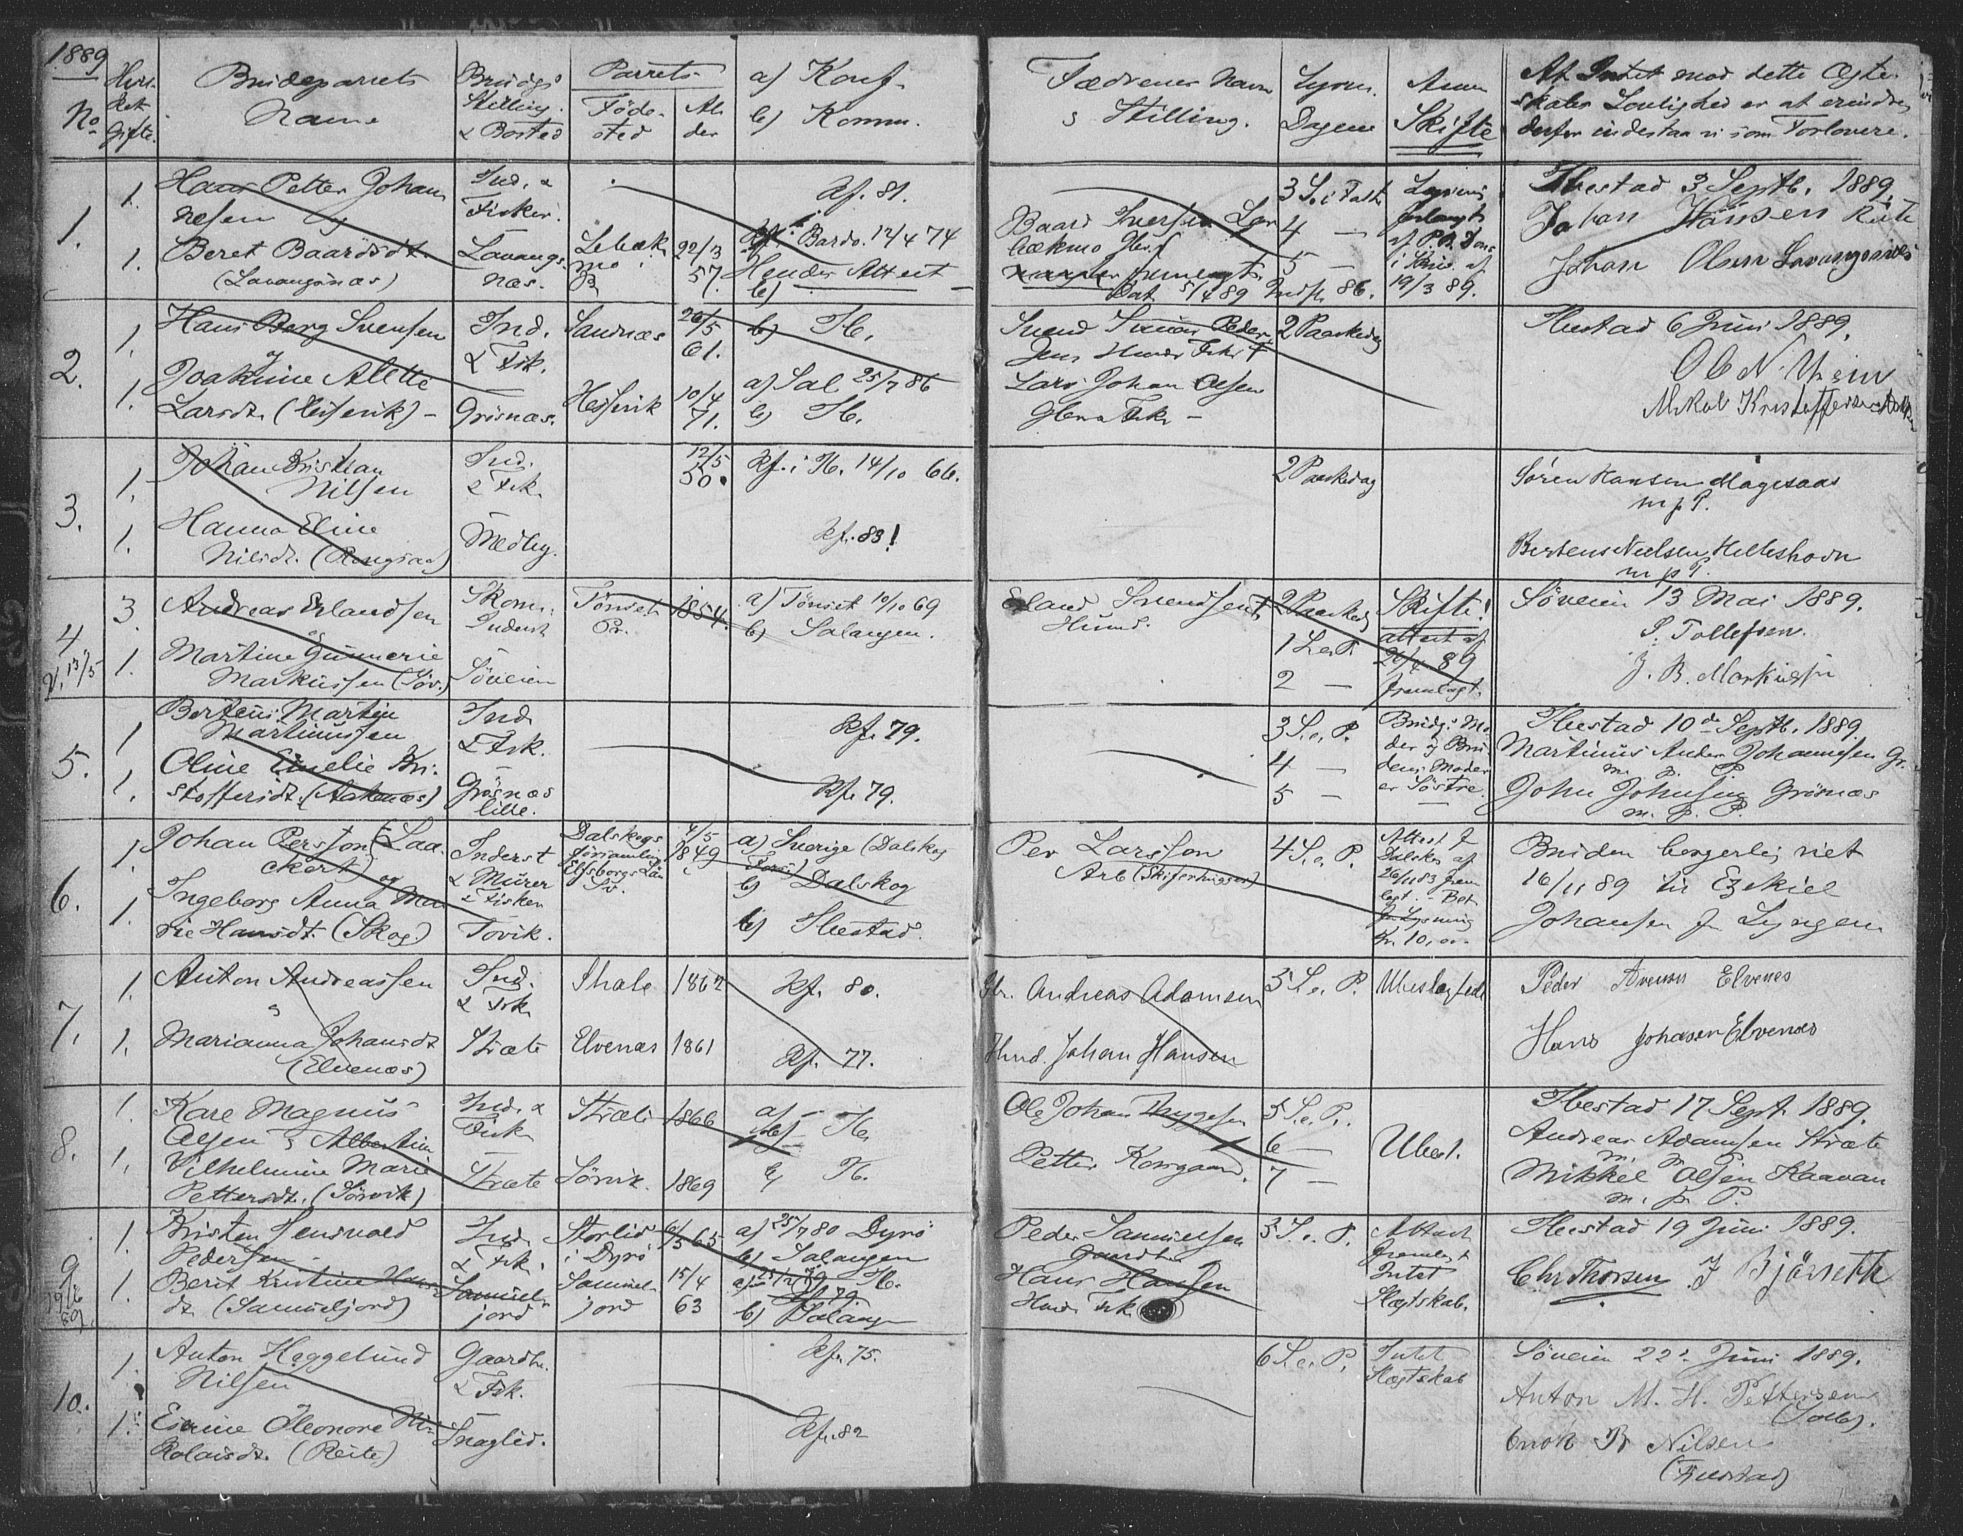 1889
No
Hvst.
Gifte.
Brudeparrets
Navne
Brudgs
Stilling
& Bosted
Parrets
Føde-
sted
Al-
der
a) Konf.
b) Komm.
Fædrenes Navn
s Stilling.
Lysn.
Dagene
Skifte
At Intet mod dette Ægte-
skabs Lovlighed er at erindre,
derfor indestaa vi som Forlovere.
1.
1.
Hans Petter Johan
nesen
og
1.
Beret Baardsdt.
(Lavangsnæs)
Ind. &
Fisker.
Lavangs-
næs.
Lebæk
mo
22/3
57.
Kf. 81.
Kf. i Bardo. 12/4 74
Hender Attest
b)
Baard Iversen
bækmo
Dat. 5/4 89
3 S. i Faste
4 —
5 —
Indst. 86.
af
i Skriv. af
19/3 89.
Ibestad 3 Septb. 1889.
Johan Hansen
Johan Olsen Lavangsnæs
2.
1.
Hans Berg Svensen
1.
Joakime Alette
Larsdt. (Hesjevik) -
Ind.
& Fisk.
Grøsnæs.
Sandnæs
Hesjevik
26/5
61.
10/4
71.
b) Ib.
a) Sal 25/7 86
b) Ib.
Svend Peder
Lars Johan Olsen
2 Paaskedag
Ibestad 6 Juni 1889.
Ole N.
Mikal Kristoffersen
3.
1.
Johan Kristian
Nilsen
1.
Hanna Eline
Nilsdt.
Ind.
& Fisk.
Medby.
12/5
50.
Kf. i Ib. 14/10 66.
Kf. 83!
2 Paaskedag
Søren Hansen Møgesaas
m p P.
Bertens Neelsen Helleshavn
m p P.
4
V. 13/5
3.
Andreas Erlandsen
og
1.
Martine Gunnerie
Markussen (Søv.)
Skom.
Inderst
Søveien
Tønset
Pr.
1854.
a) Tønset 10/10 69
b) Salangen.
Erland Svendsen
Husmd.
2 Paaskedag
1 S. e. P.
2 —
Skifte!
attest af
89
fremlagt.
Søveien 13 Mai 1889.
S. Tollefsen.
J. B. Markussen
5.
1
Berteus Martin
Martinussen
1.
Oline Emelie Kri-
stoffersdt. (Aakenæs)
Ind.
& Fisk.
Grøsnæs
lille.
Kf. 79.
Kf. 79.
3 S. e. P.
4 —
5 —
Brudgs Mo
der og Bru
dens Moder
er Søstre.
Ibestad 10de Septb. 1889.
Martinus Ander Johannesen Gr.
m. p. P.
John Johnsen Grøsnæs
m. p. P.
6.
1.
Johan Persson (Laa-
ckert) og
1.
Ingeborg Anna Ma
rie Hansdt. (Skog.)
Inderst
& Mürer
& Fisker
Tovik.
Dalskogs
forsamling
Elfsborgs Län
Sv.
4/5
1849
a) Sverige (Dalskog
Förs.)
b) Dalskog
b) Ibestad.
Per Larsson
Arb.
4 S. e. P.
Attest f.
Dalskog af
26/11 83 frem
lagt. - Bet.
for Lysning
Kr. 10,00
Bruden borgerlig viet
16/11 89 til Ezekiel
Johansen fr. Lyngen
7.
1.
Anton Andreassen
&
1.
Marianna Johansdt
(Elvenæs)
Ind.
& Fisk
Stræte
Ibale
Elvenæs
1862
1861
Kf. 80.
Kf. 77.
Gbr. Andreas Adamsen
Hmd. Johan Hansen
3 S. e. P.
Ubeslægtede
Peder Elvenes
Hans Johasen Elvenæs
8.
1.
Kare Magnus
Olsen & Albertine
1.
Vilhelmine Marie
Pettersdt. (Sørvik)
Ind. &
Fisk
Stræte
Stræte
Sørvik.
1866
1869
a) Ib.
b) Ib.
Ole Johan Thygesen
Petter Korsgaard.
5 S. e. P.
6 —
7 —
Ubesl.
Ibestad 17 Sept. 1889.
Andreas Adamsen Stræte
m. p.
Mikkel Olsen Kaavan
m. p. P.
9
19/6
89.
1.
Kristen Jensvold
Pedersen
1.
Berit Kristine Hans
dt. (Samueljord)
Ind.
& Fisk.
Samuel-
jord
Storlid
i Dyrø
Samuel-
jord
6/5 65
15/4
63
a) 25/7 80 Dyrø
b) Salangen
a) Ib.
b) Salangen
Peder Samuelsen
Gaardbr.
Hans Hansen
Husm. Fisk
3 S. e. P.
Attest
fremlagt
Intet
Slægtskab.
Ibestad 19 Juni 1889.
Chr Thorsen J Bjørseth
10.
1.
Anton Heggelund
Nilsen
1.
Esrine Oleonore Ni-
kolaisdt. (Reite)
Gaardbr.
& Fisk.
Snaglid.
Kf. 75.
Kf. 82
6 S. e. P.
Intet
Slægtskab
Søveien 22. Juni 1889.
Anton M. H. Pettersen
Enok B Nilsen